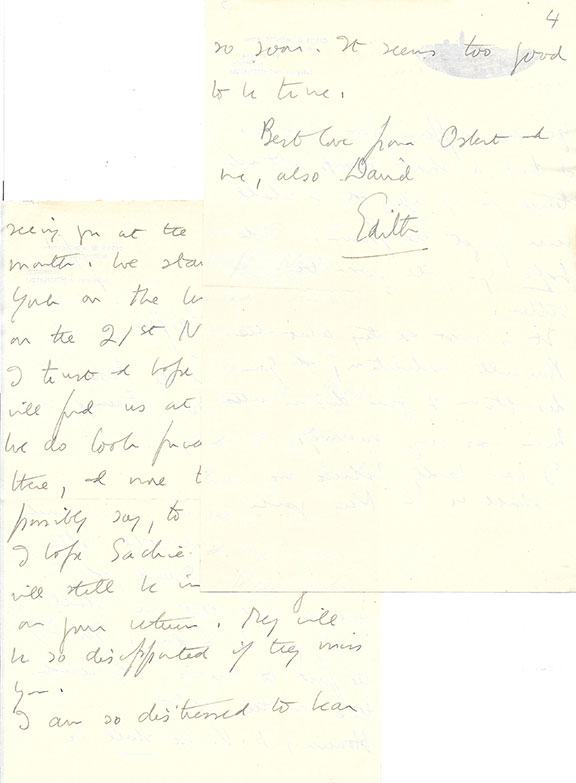 seeing you at the
month. We sta
York on the
on the 21st N
I trust & hope
will find us at
We do look forwa
there, and more t
possibly say, to
I hope Sachie
will still be in
on your return. They will
be so disappointed if they miss
you.
I am so distressed to hear
4
so soon. It seems too good
to be true.
Best love from Osbert and
me, also David
Edith